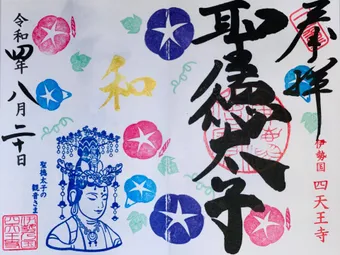 奉拝
伊勢国 四天王寺
聖徳太子
和
令和四年 八月二十日
聖徳太子の
観音さま